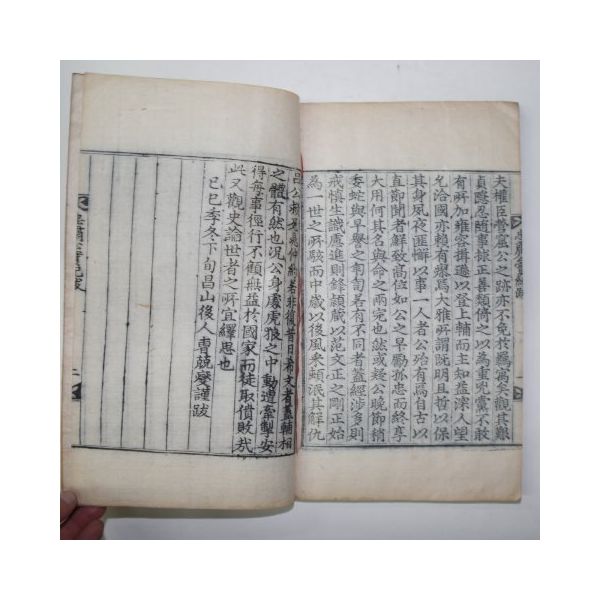 夫權臣曹窳公之跡亦不免於羈寓矣觀其艱
貞懲忍隨事採正善類倚之以爲重兇黨不敢
有所加雍容揖遜以登上輔而主知益深人望
允洽國亦賴有爍爲大雅所謂旣明且哲以保
其身夙夜匪懈以事一人者公殆有爲自古以
直節聞者鮮致高位如公之早勵孤忠而終享
大用何其名與命之兩完也然或疑公晚節稍
委蛇與早譽若有不同者蓋經涉多則
戒愼生識慮進則鋒穎藏以范文正之剛正始
爲一世之所駭而中歲以後風采頓泯其解仇
呂公
之體有然也況公身處虎狼之中動遭牽掣安
得每事徑行不顧無益於國家而徒取僨敗哉
此又觀史論世者之所宜繹思也
己巳季冬下旬昌山後人曺兢燮謹跋